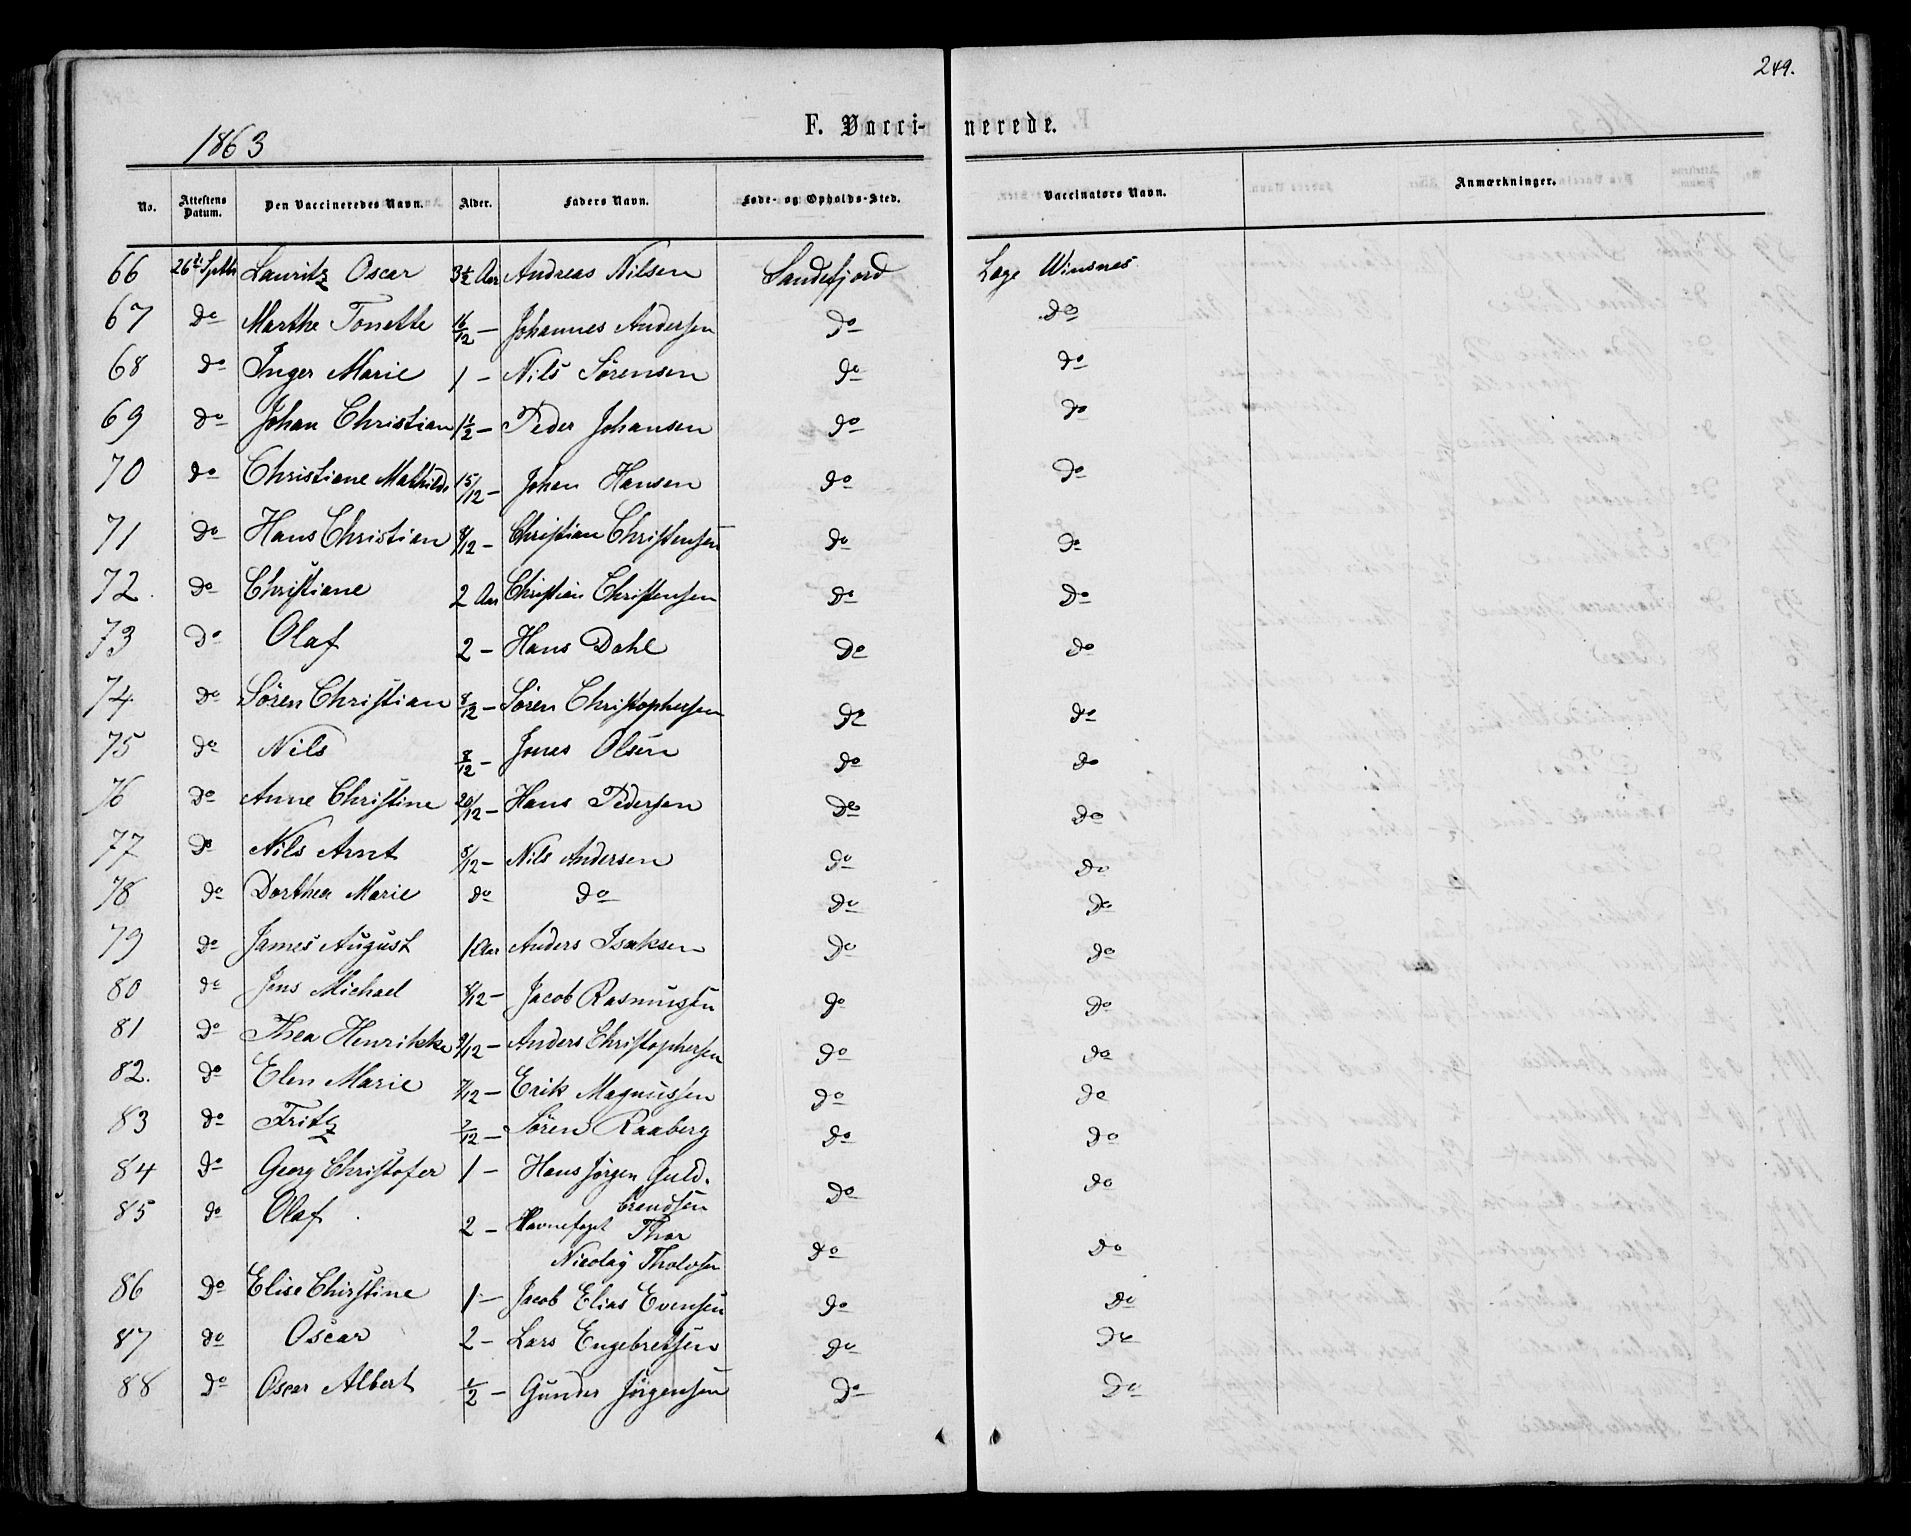 249.
1863
F. Vacci- nerede.
No. Attestens Datum. Den Vaccineredes Navn. Alder. Faders Navn. Føde- og Opholds-Sted. Vaccinators Navn. Anmærkninger.
66 26de Septbr Lauritz Oscar 3½ Aar Andreas Nilsen Sandefjord Læge Winsnes
67 do Marthe Tonette 16/12 – Johannes Andersen do do
68 do Inger Marie 1 – Nils Sørensen do do
69 do Johan Christian 1½ – Peder Johansen do do
70 do Christiane Mathilde 15/12 – Johan Hansen do do
71 do Hans Christian 8/12 – Christian Christensen do do
72. do Christiane 2 Aar Christian Christensen do do
73 do Olaf 2 – Hans Dahl do do
74 do Søren Christian 8/12 – Søren Christophersen do do
75 do Nils 8/12 – Jonas Olsen do do
76 do Anne Christine 20/12 – Hans Pedersen do do
77 do Nils Arnt 5/12 – Nils Andersen do do
78 do Dorthea Marie do do do do
79 do James August 1 Aar Anders Isaksen do do
80 do Jens Michael 8/12 – Jacob Rasmussen do do
81 do Thea Henrikke 9/12 – Anders Christophersen do do
82. do Elen Marie 7/12 – Erik Magnussen do do
83 do Fritz 7/12 – Søren Raaberg do do
84 do Georg Christofer 1 – Hans Jørgen Guld- do do
brandsen
85 do Olaf 2 – Havnefoget Thor do do
Nicolay Tholvsen
86 do Elise Christine 1 – Jacob Elias Evensen do do
87 do Oscar 2 – Lars Engebretsen do do
88 do Oscar Albert ½ – Gunder Jørgensen do do